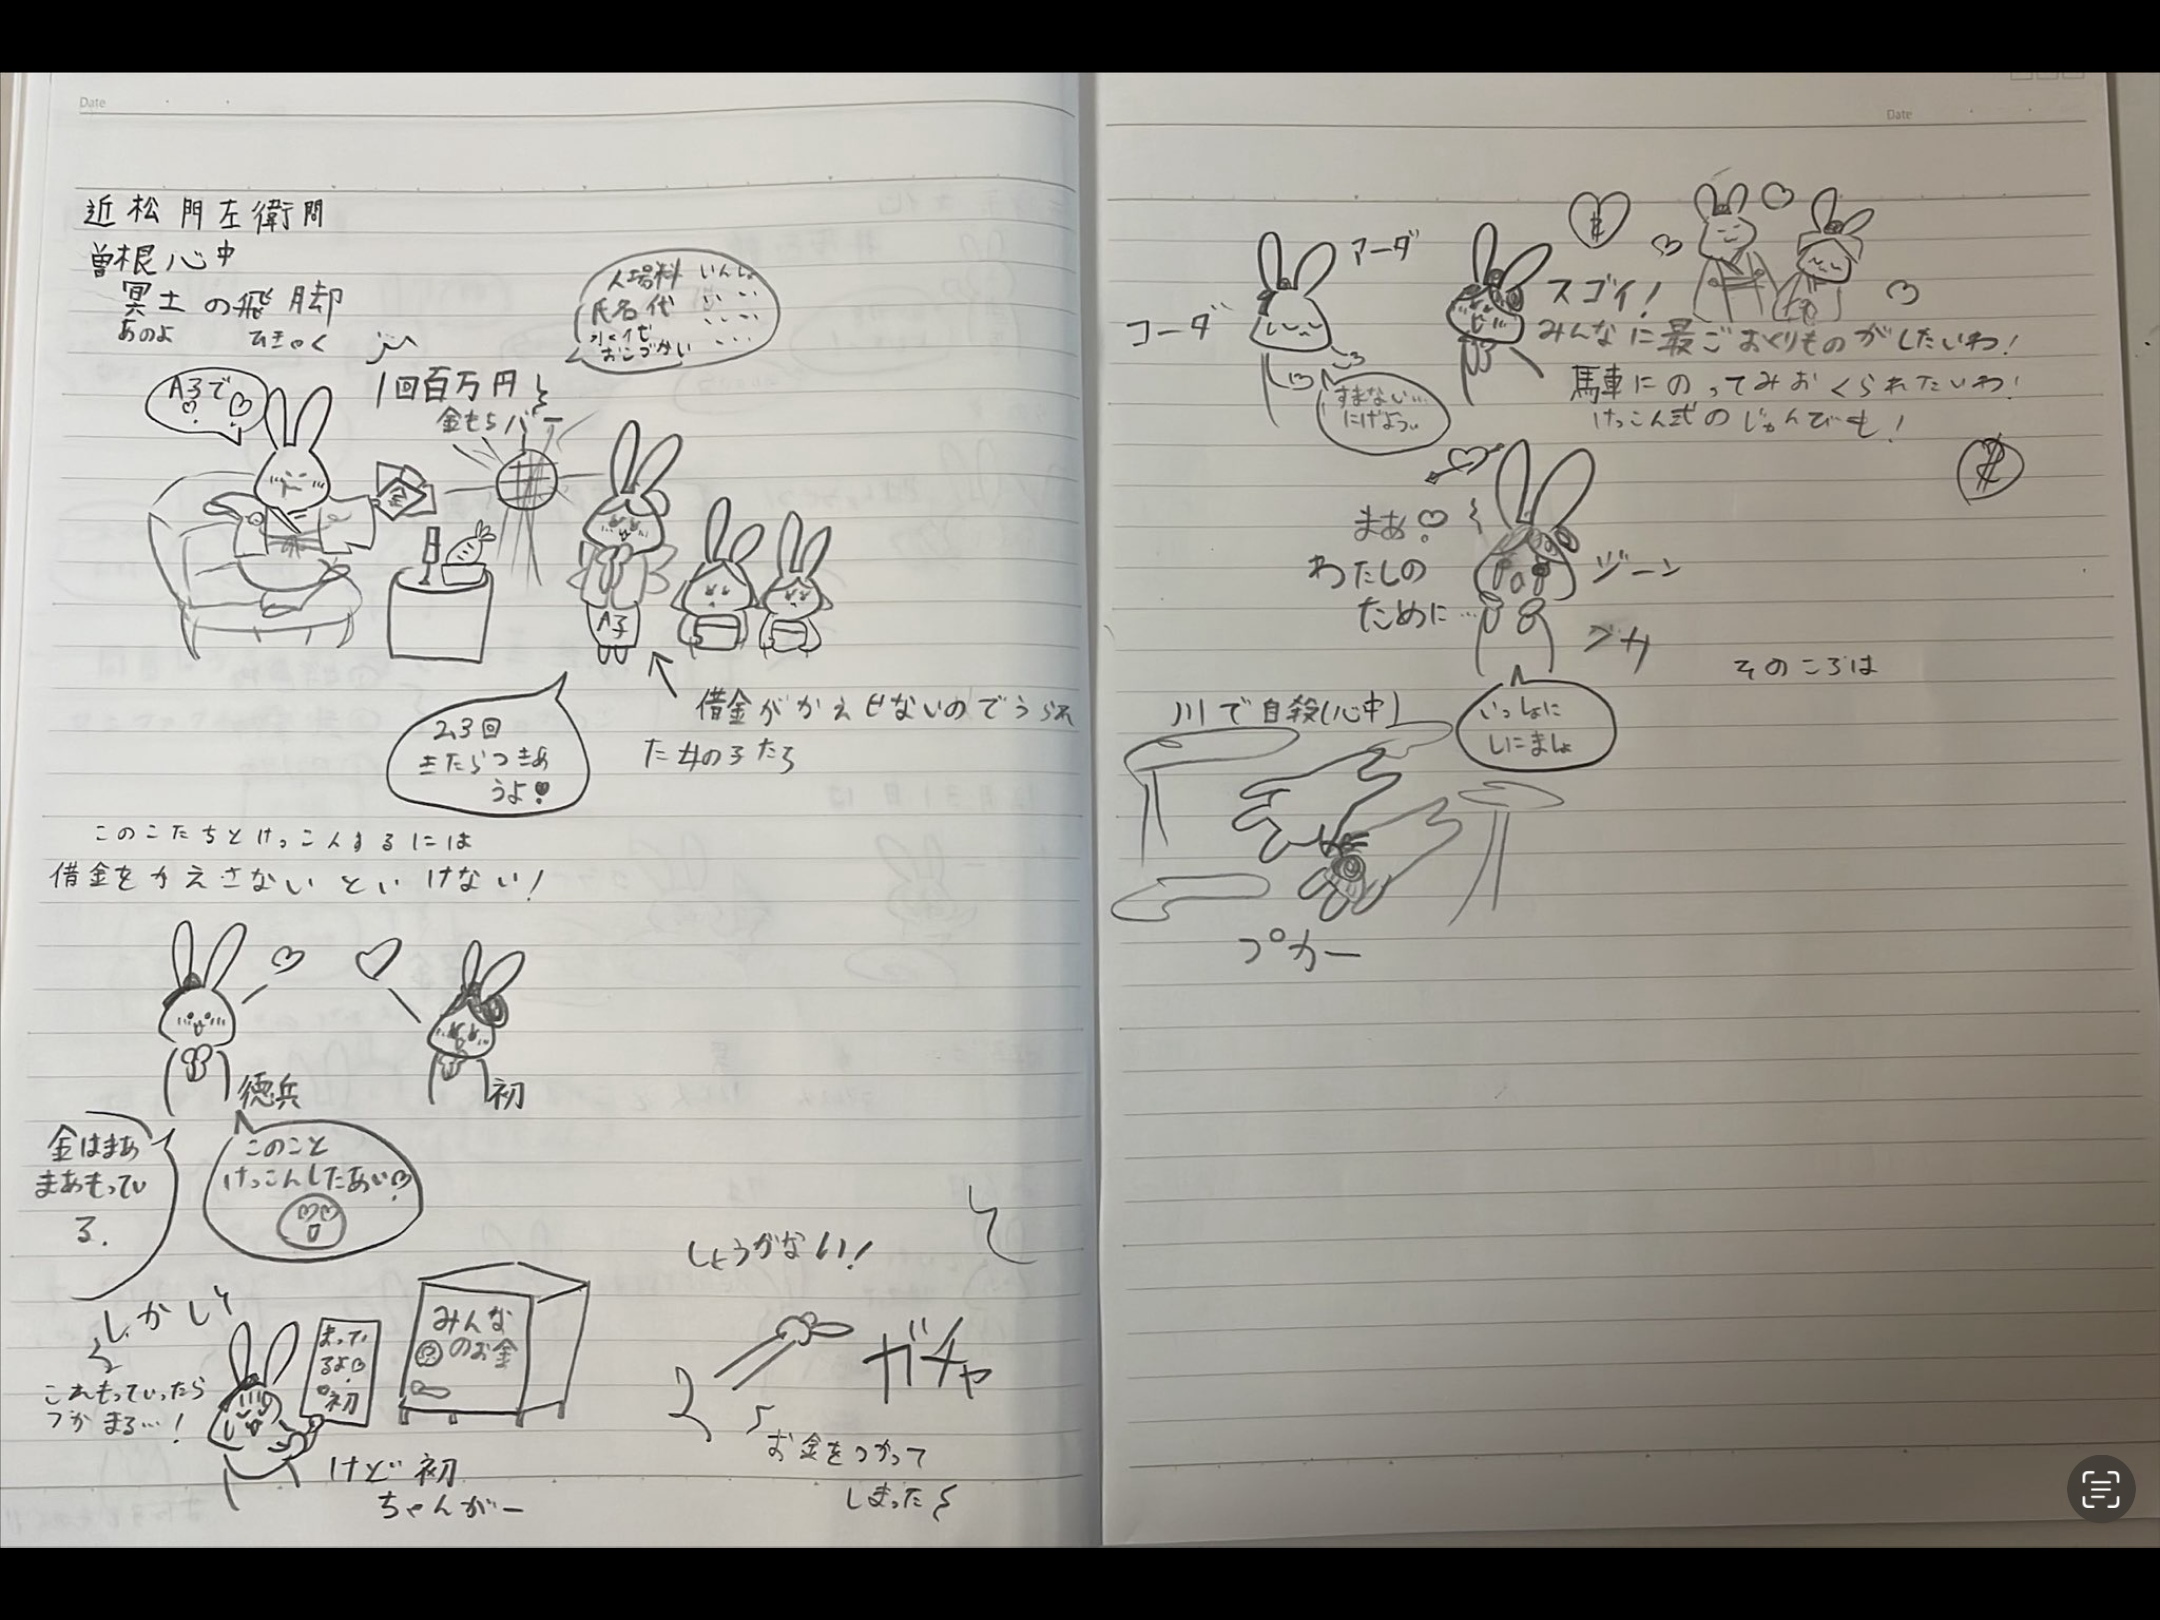 Date
近松門左衛間
曽根心中
冥土の飛脚
あのよ ひきゃく
入場料
氏名代
水代
おこづかい
1回百万円
金もちバー
A子で
金
A子
借金がかえせないのでうられ
た女の子たち
23回
きたらつきあ
うよ
このこたちとけっこんするには
借金をかえさないといけない!
徳兵
初
金はまあ
まあもってい
る.
このこと
けっこんしたあい
しかし
これもっていったら
つかまる…!
まって
るよ
初
みんな
のお金
けど初
ちゃんがー
しょうがない!
ガチャ
お金をつかって
しまった
Date
コーダ
アーダ
すまない…
にげよう
スゴイ!
みんなに最ごおくりものがしたいわ!
馬車にのってみおくられたいわ!
けっこん式のじゅんびも!
まあ
わたしの
ために…
ジーン
そのころは
いっしょに
しにましょ
川で自殺(心中)
プカー